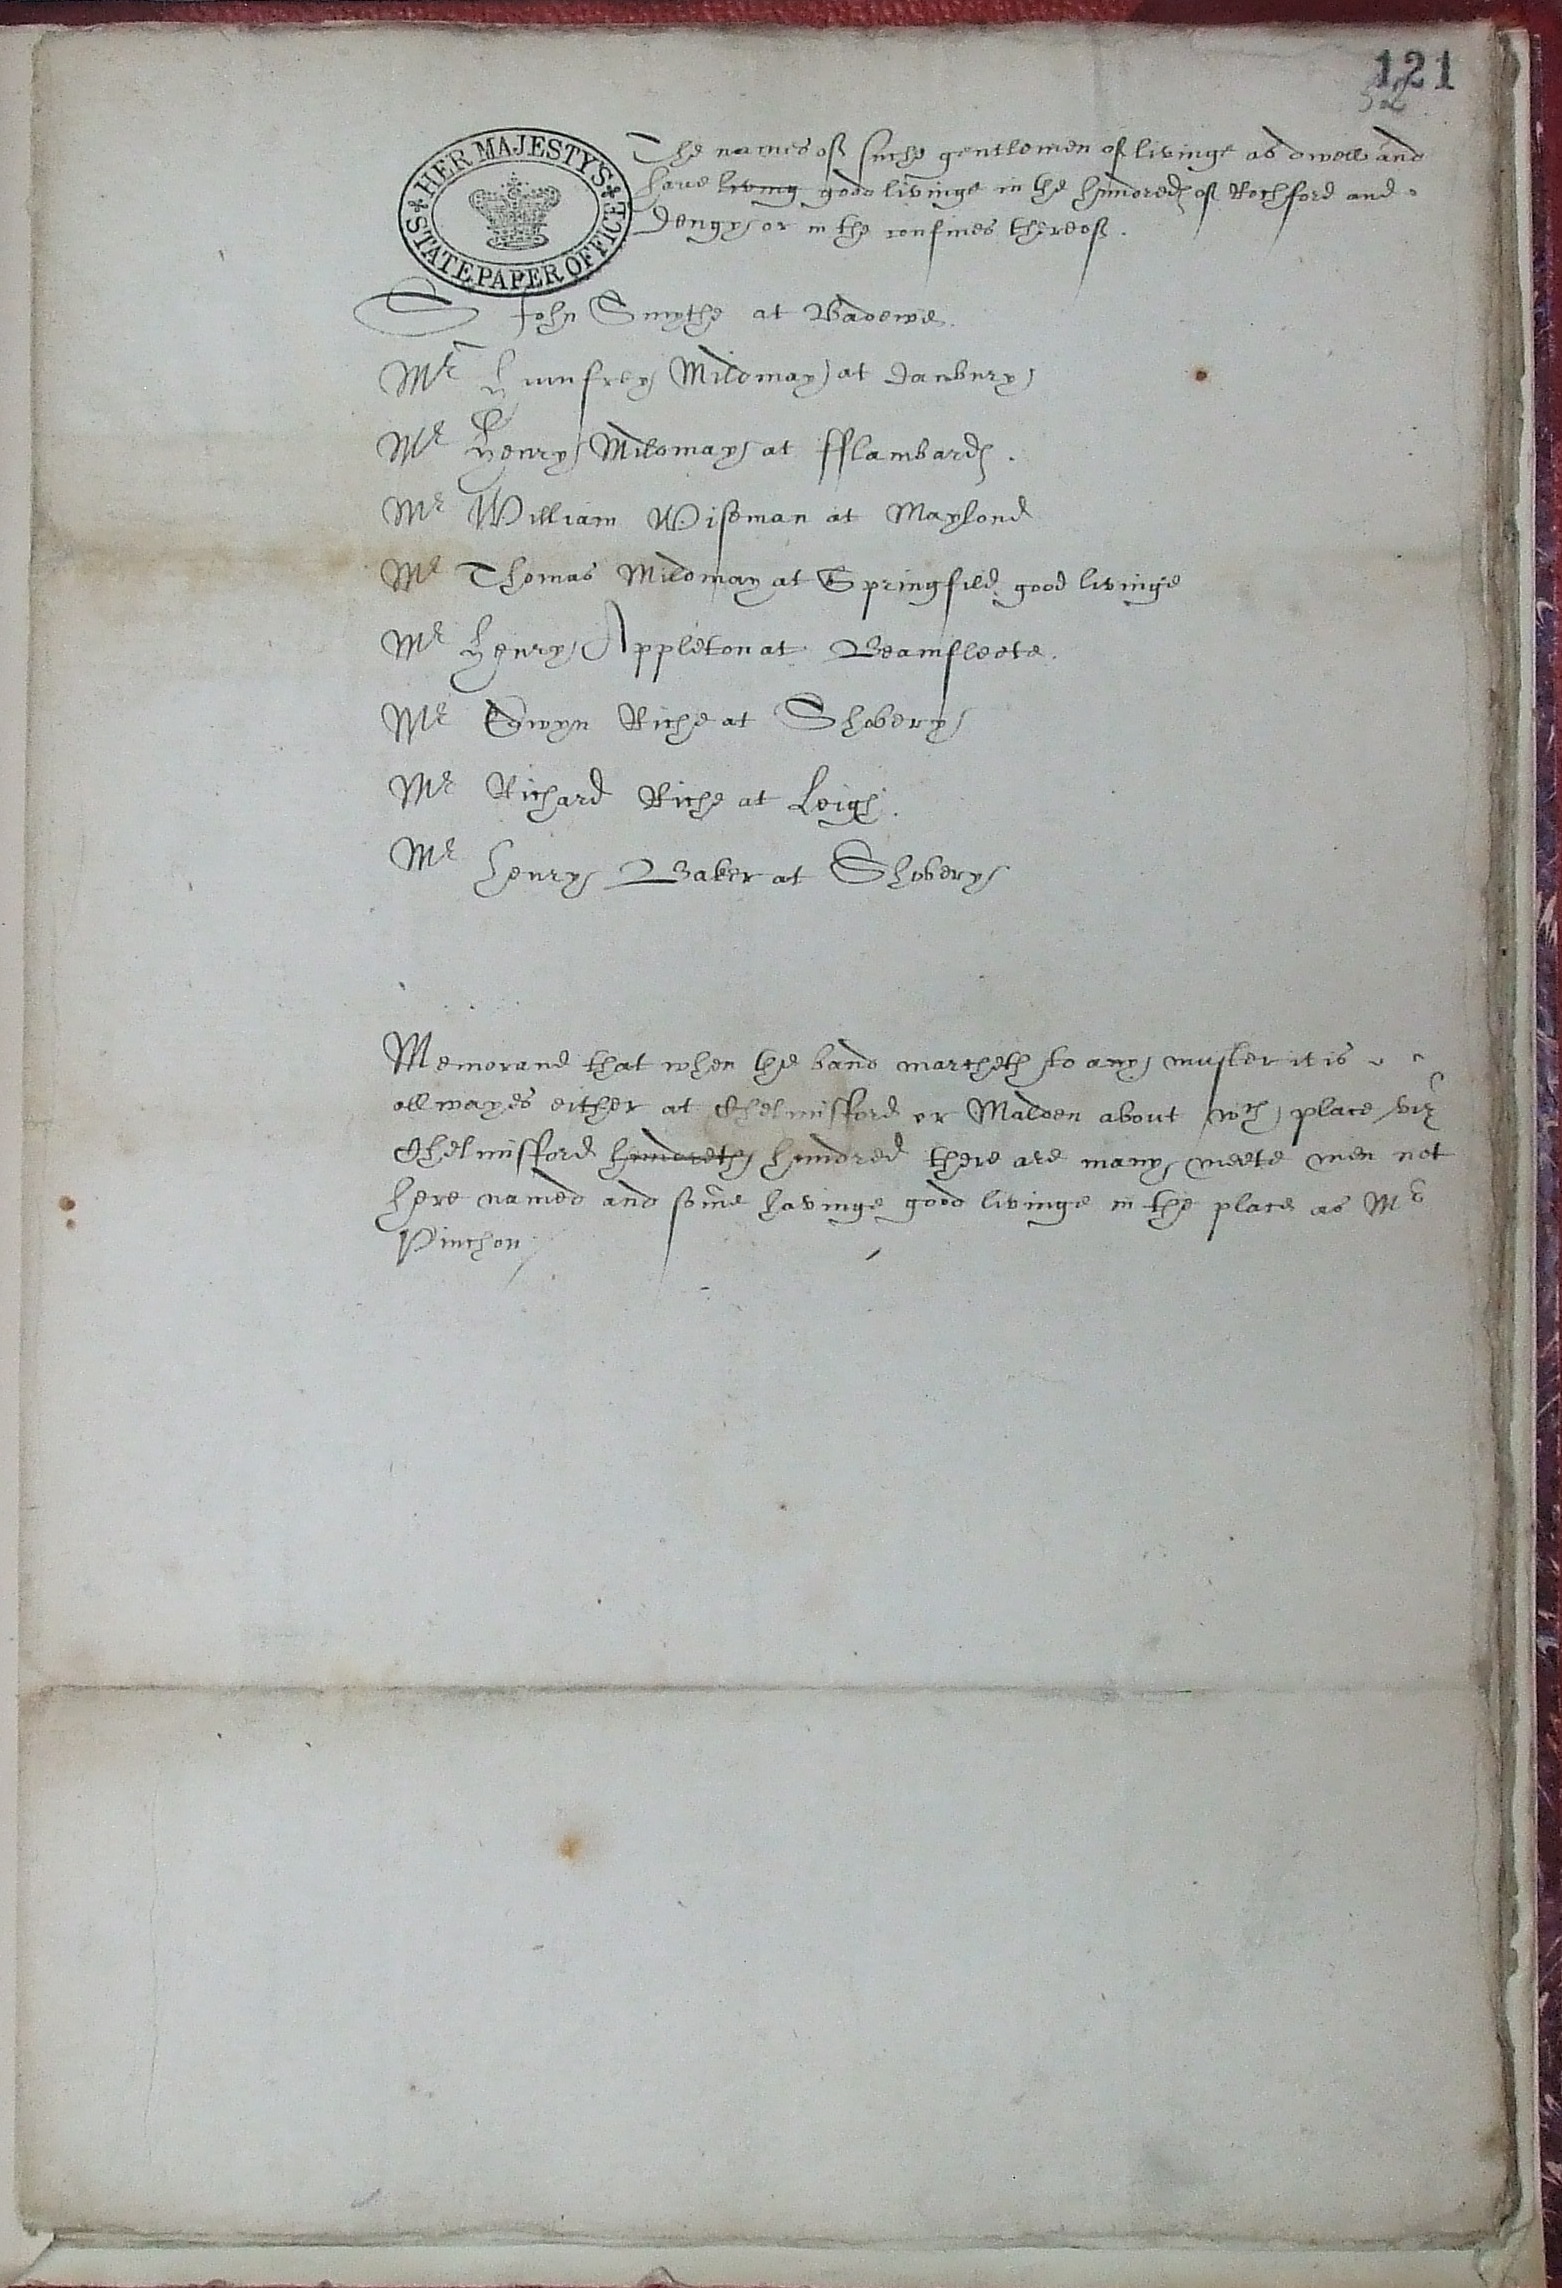 121
52
HER MAJESTY'S
STATE PAPER OFFICE
The names of suche gentlemen of livinge as dwell and
have living good livinge in the hundreds of Rochford and
Dengy or in the confines thereof.
Sr John Smythe at Badewe.
Mr Humfrey Mildmay at Danbury
Mr Henry Mildmay at fflambards.
Mr William Wiseman at Maylond
Mr Thomas Mildmay at Springfild good livinge
Mr Henry Appleton at Beamfleete.
Mr Edwyn Riche at Shobery
Mr Richard Riche at Leigh.
Mr Henry Baker at Shobery
Memorand that when the band marcheth to any muster it is
allwayes either at Chelmisford or Malden about wch place viz
Chelmisford hundreth hundred there are many meete men not
here named and some havinge good livinge in the place as Mr
Pinchon